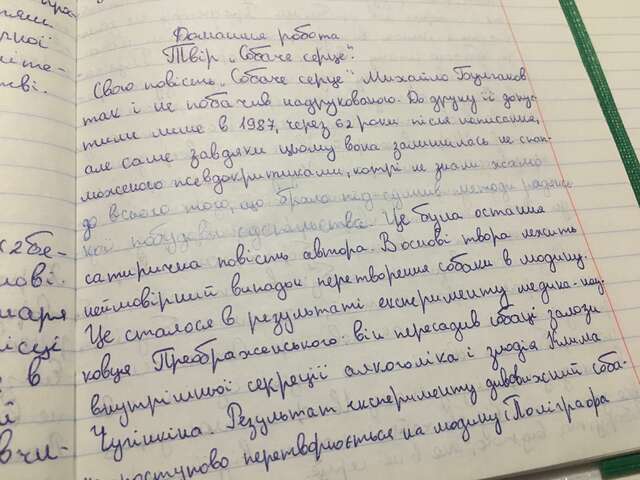 Домашня робота
Твір „Собаче серце".
Свою повість „Собаче серце" Михайло Булгаков
так і не побачив надрукованою. До друку її допус-
тили лише в 1987, через 62 роки після написання,
але саме завдяки цьому вона залишилась не спап-
люженою псевдокритиками, котрі не знали жалю
до всього того, що брало під сумнів методи радянсь-
кої побудови суспільства. Це була остання
сатирична повість автора. В основі твора лежить
неймовірний випадок перетворення собаки в людину.
Це сталося в результаті експерименту медика-нау-
ковця Преображенського: він пересадив собаці залози
внутрішньої секреції алкоголіка і злодія Клима
Чугункіна. Результат експерименту дивовижний соба-
поступово перетворюється на людину і Поліграфа